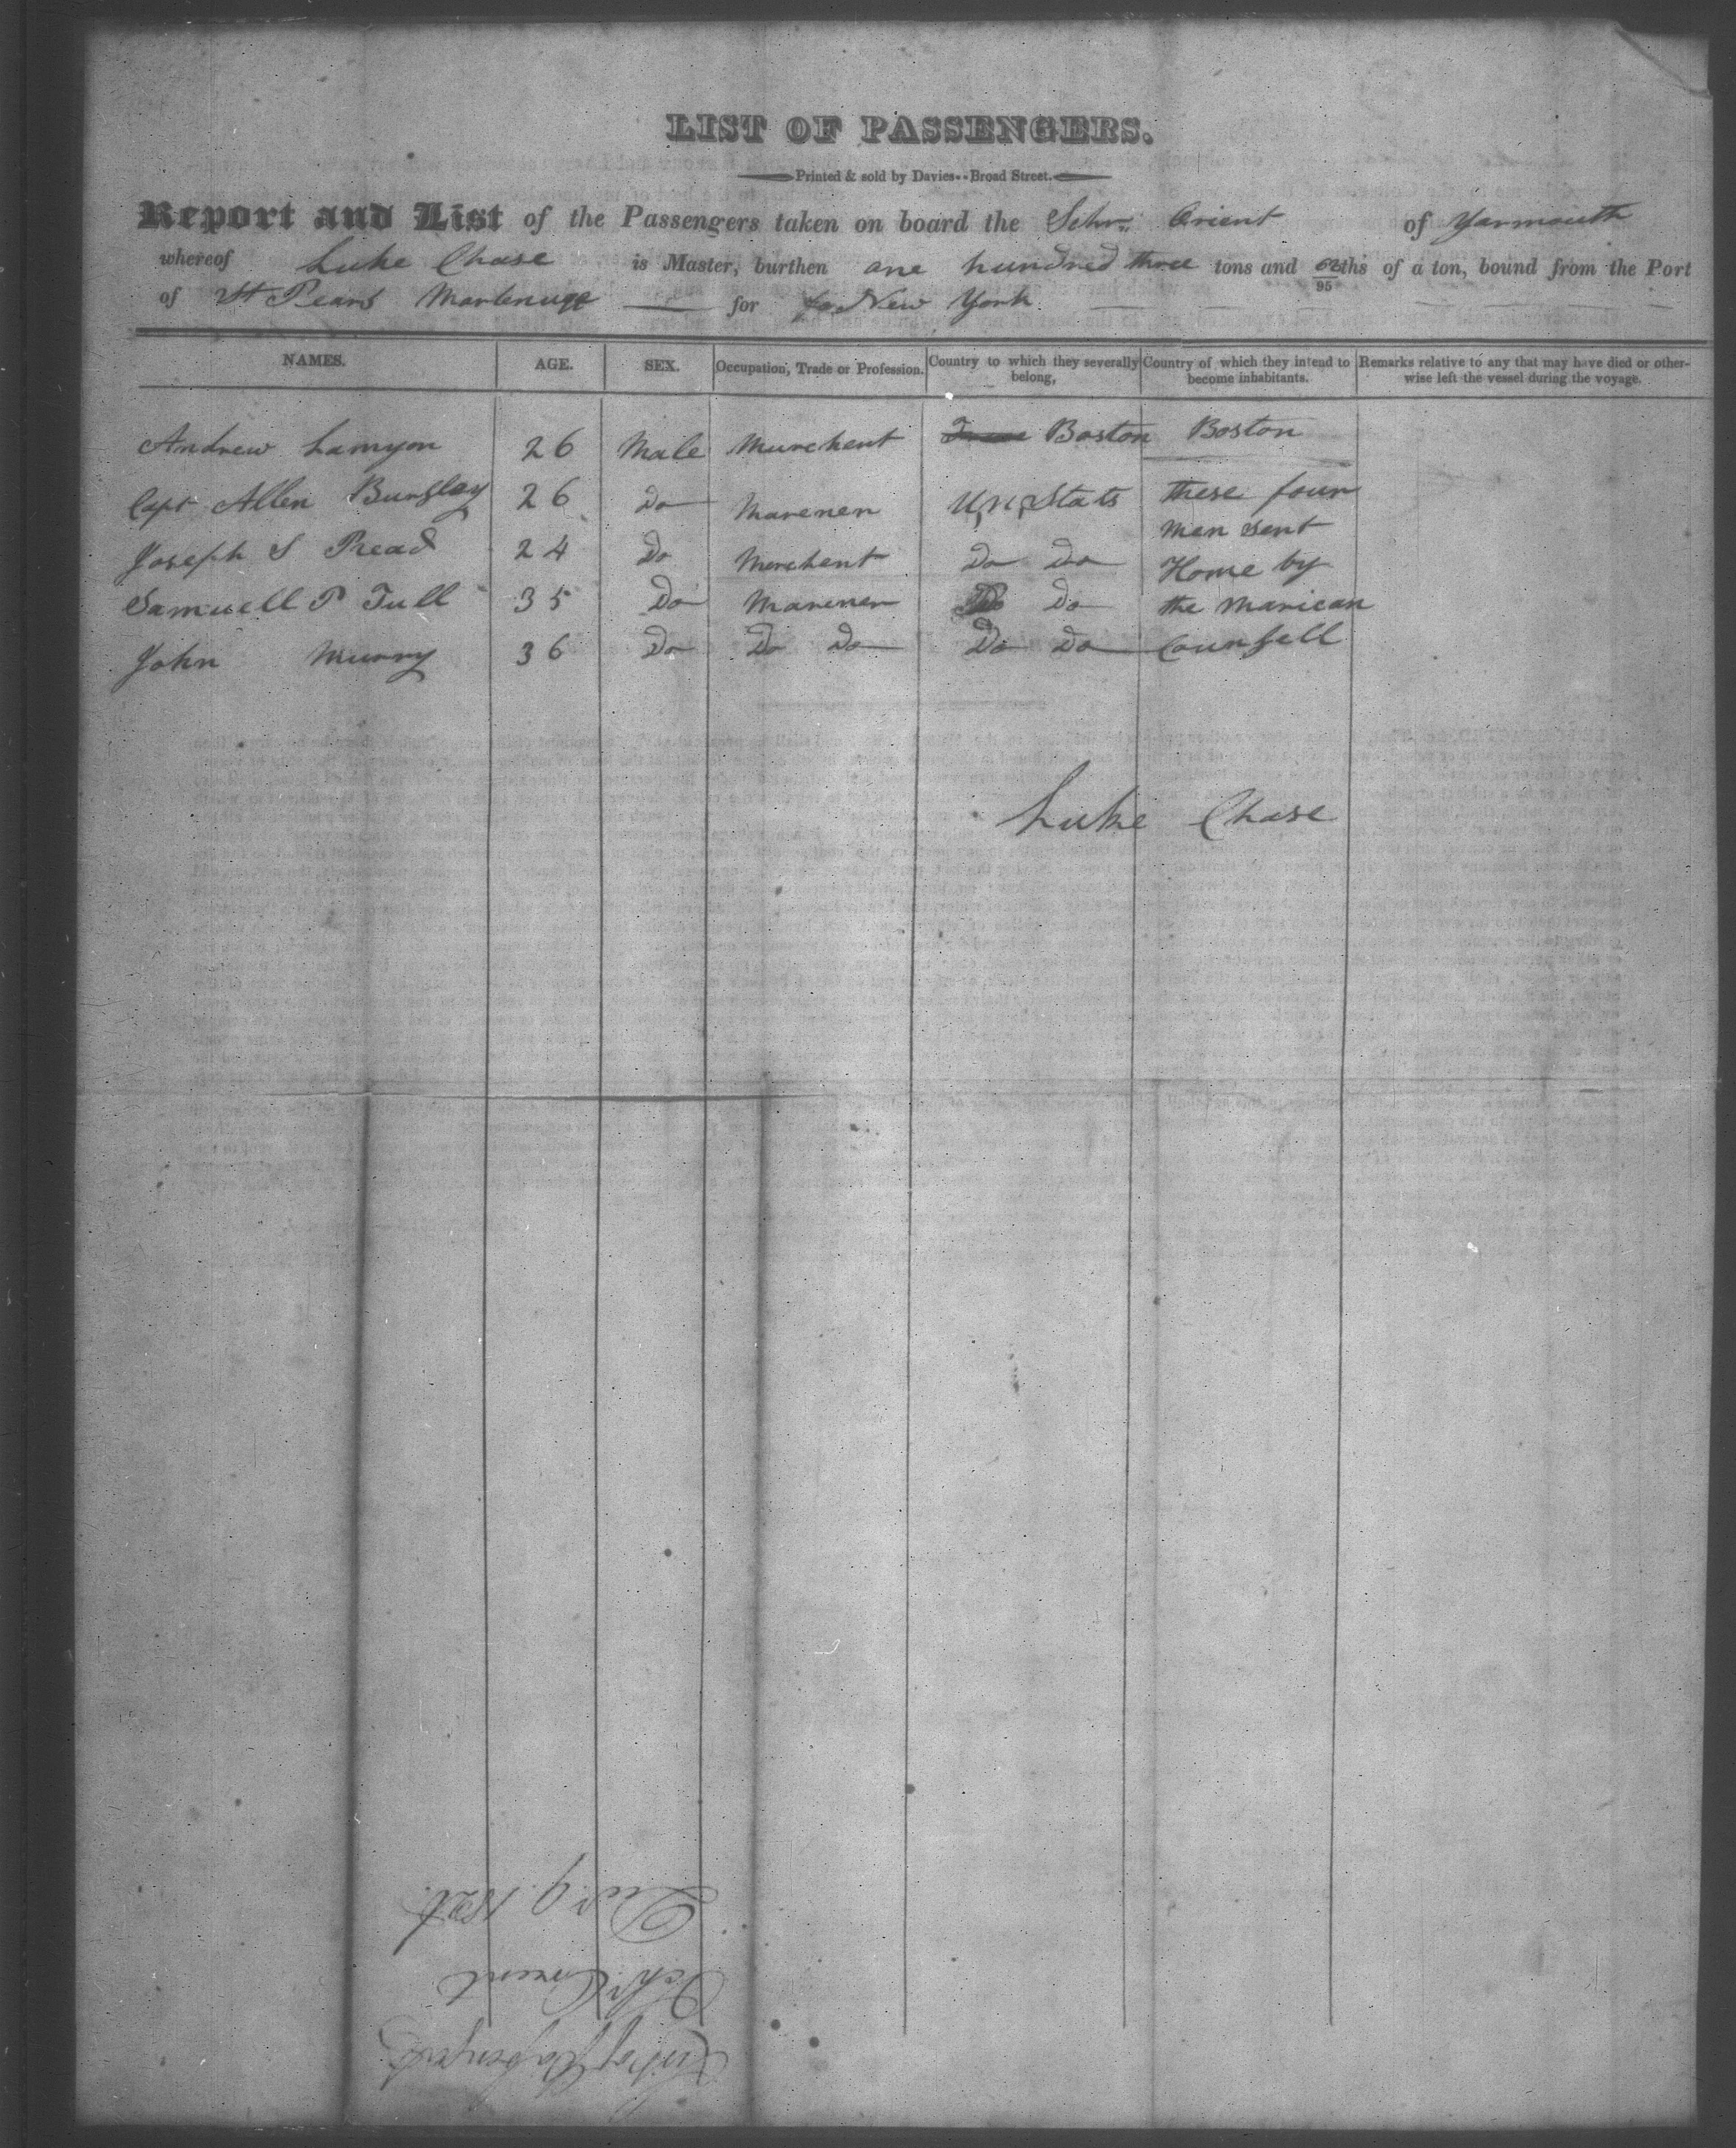 LIST OF PASSENGERS.
Printed & sold by Davies--Broad Street.
Report and List of the Passengers taken on board the Schr. Orient of Yarmouth
whereof Luke Chase is Master, burthen one hundred three tons and 62/95ths of a ton, bound from the Port
of St Pears Martenuqe for New York
NAMES. AGE. SEX. Occupation, Trade or Profession. Country to which they severally belong, Country of which they intend to become inhabitants. Remarks relative to any that may have died or otherwise left the vessel during the voyage.
Andrew Lamyon 26 Male Murchent Boston Boston
Capt Allen Bursley 26 Do Marener Un Stats these four
men sent
Joseph S Read 24 Do Merchent Do Do Home by
Samuell P Tull 35 Do Marener Do Do the Marican
John Murry 36 Do Do Do Do Do Counsell
Luke Chase
List of Passengers
Schr Orient
Decr 9. 1826.